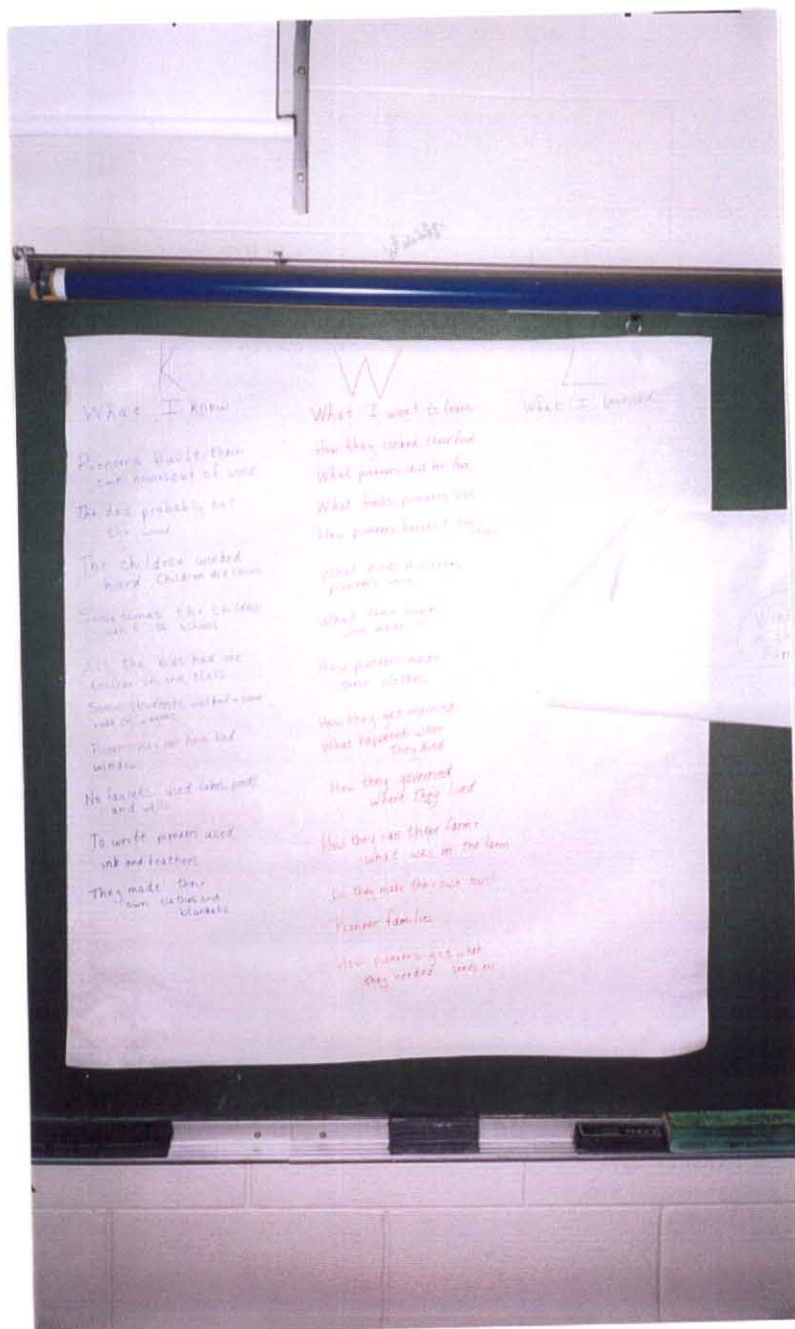 K
What I know
Pioneers
out of wood
The dad probably cut
the wood
The children worked
hard Children did chores
Sometimes the children
went to school
All the kids had one
teacher in one class
Some students walked
rode on wagons
window
No faucets used lakes, ponds
and wells
To write pioneers used
ink and feathers
They made their
own clothes and
blankets
W
What I want to learn
How they cooked their food
What pioneers did for fun
What foods pioneers ate
How pioneers
What kinds of clothes
pioneers wore
What
made
How pioneers made
their clothes
How they got married
What happened when
they died
How they governed
where they lived
How they ran their farm +
what was on the farm
Do they make their own
Pioneer families
How pioneers got what
they needed
L
What I learned